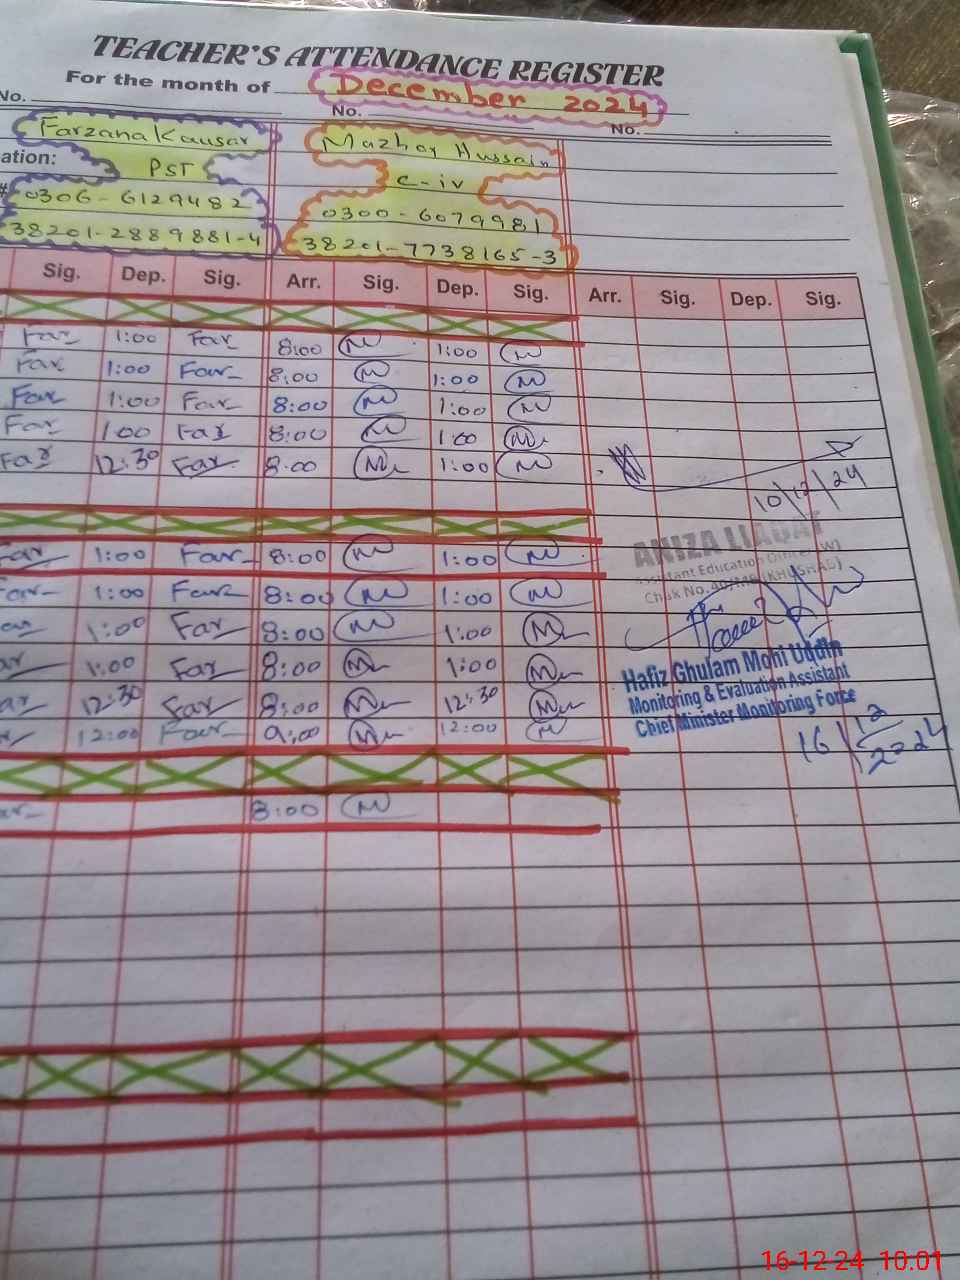 TEACHER'S ATTENDANCE REGISTER
For the month of December 2024
No. No. No.
Farzana Kausar Mazhar Hussain
ation: PST C-iv
# 0306-6129482 0300-6079981
38201-2889881-4 38201-7738165-3
Sig. Dep. Sig. Arr. Sig. Dep. Sig. Arr. Sig. Dep. Sig.
Far 1:00 Far 8:00 M 1:00 M
Far 1:00 Far 8:00 M 1:00 M
Far 1:00 Far 8:00 M 1:00 M
Far 1:00 Far 8:00 M 1:00 M
Far 12:30 Far 8:00 M 1:00 M
10/12/24
ANIZA LIAQAT
Assistant Education Officer (W)
Chak No.40/MB (KHUSHAB)
Far 1:00 Far 8:00 M 1:00 M
Far 1:00 Far 8:00 M 1:00 M
ar 1:00 Far 8:00 M 1:00 M
ar 1:00 Far 8:00 M 1:00 M
ar 12:30 Far 8:00 M 12:30 M
r 12:00 Far 9:00 M 12:00 M
Hafiz Ghulam Mohi Uddin
Monitoring & Evaluation Assistant
Chief Minister Monitoring Force
16/12/2024
ar 8:00 M
16-12-24 10.01